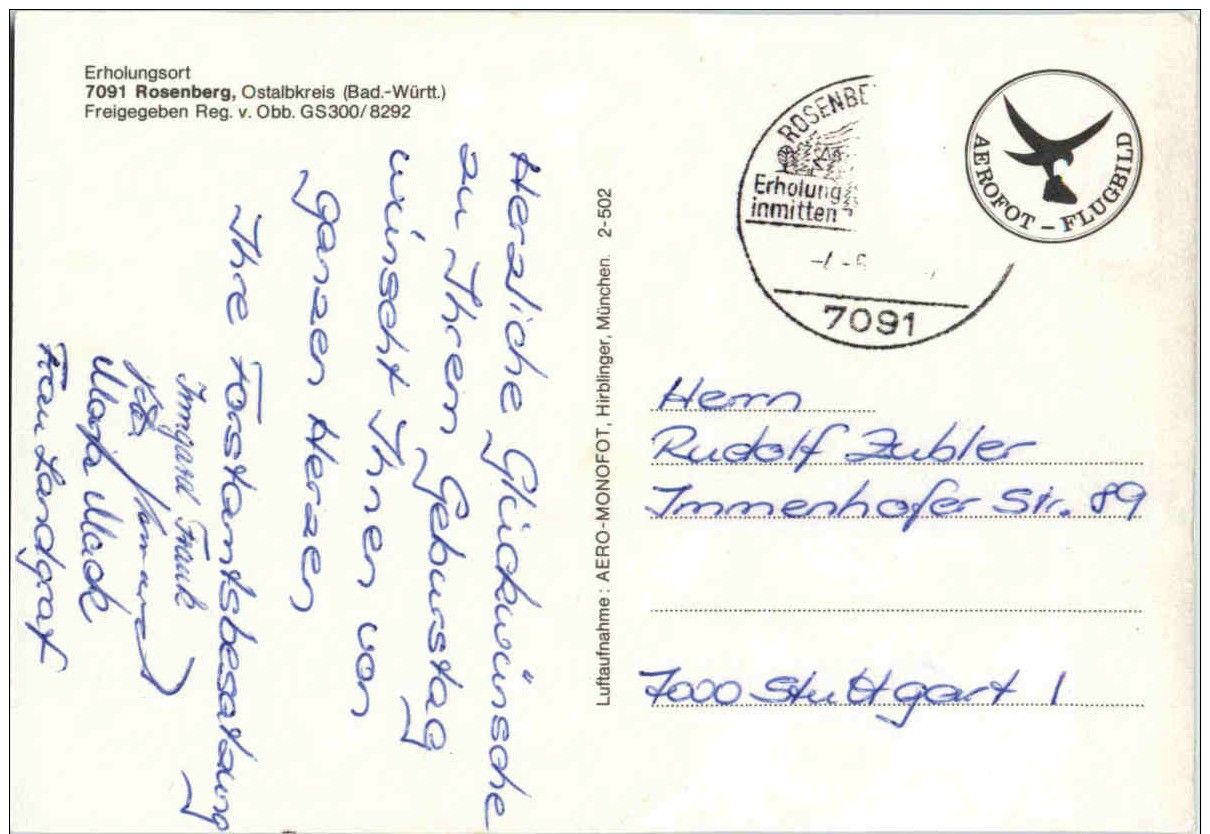 Erholungsort
7091 Rosenberg, Ostalbkreis (Bad.-Württ.)
Freigegeben Reg. v. Obb. GS300/8292
Herzliche Glückwünsche
zu Ihrem Geburstag
wünscht Ihnen von
ganzen Herzen
Ihre Forstamtsbesatzung
Irmgard Frank
Maria Mack
Frau Landgraf
Luftaufnahme: AERO-MONOFOT, Hirblinger, München. 2-502
ROSENBE
Erholung
inmitten
7091
AEROFOT – FLUGBILD
Herrn
Rudolf Zubler
Immenhofer Str. 89
7000 Stuttgart 1